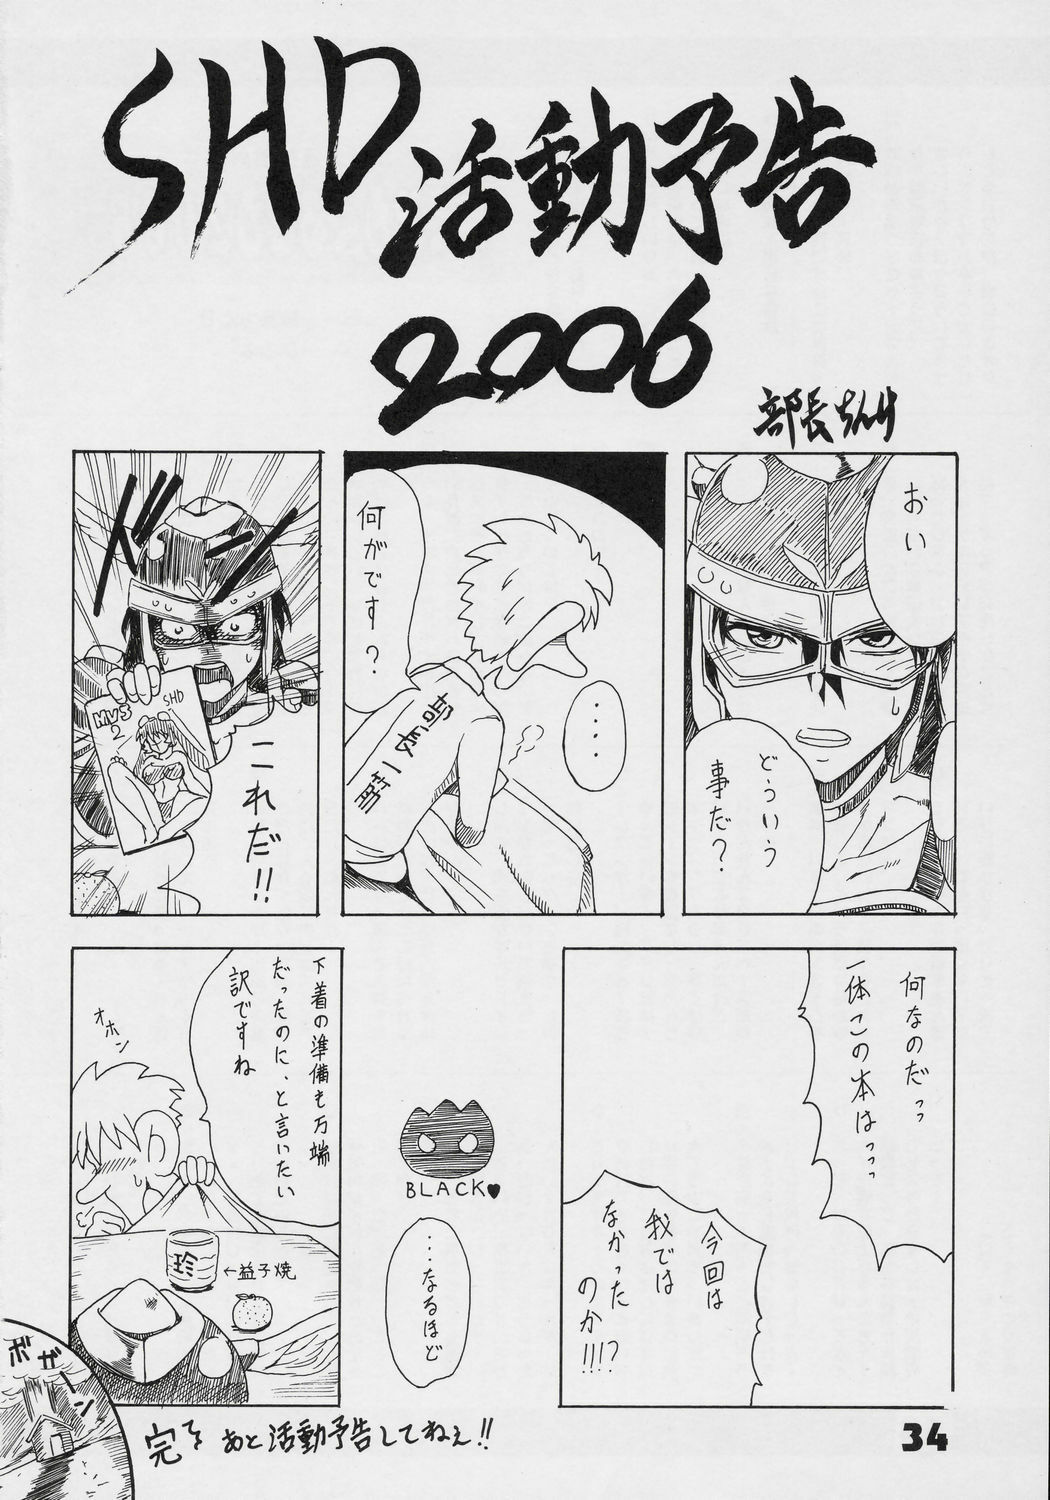 SHD 活動予告
2006
部長ちんけ
おい
どういう
事だ?
‥‥
何がです?
部長一筋
ドーン
MVS
2
SHD
これだ!!
何なのだっっ
一体この本はっっっ
今回は
我では
なかった
のか!!!?
BLACK♥
‥‥なるほど
下着の準備も万端
だったのに、と言いたい
訳ですね
オホン
珍
←益子焼
ボガーン
完
あと活動予告してねえ!!
34